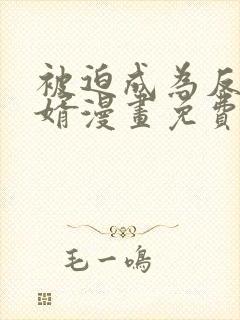 被迫成為反
婿漫畫免費
毛一鳴